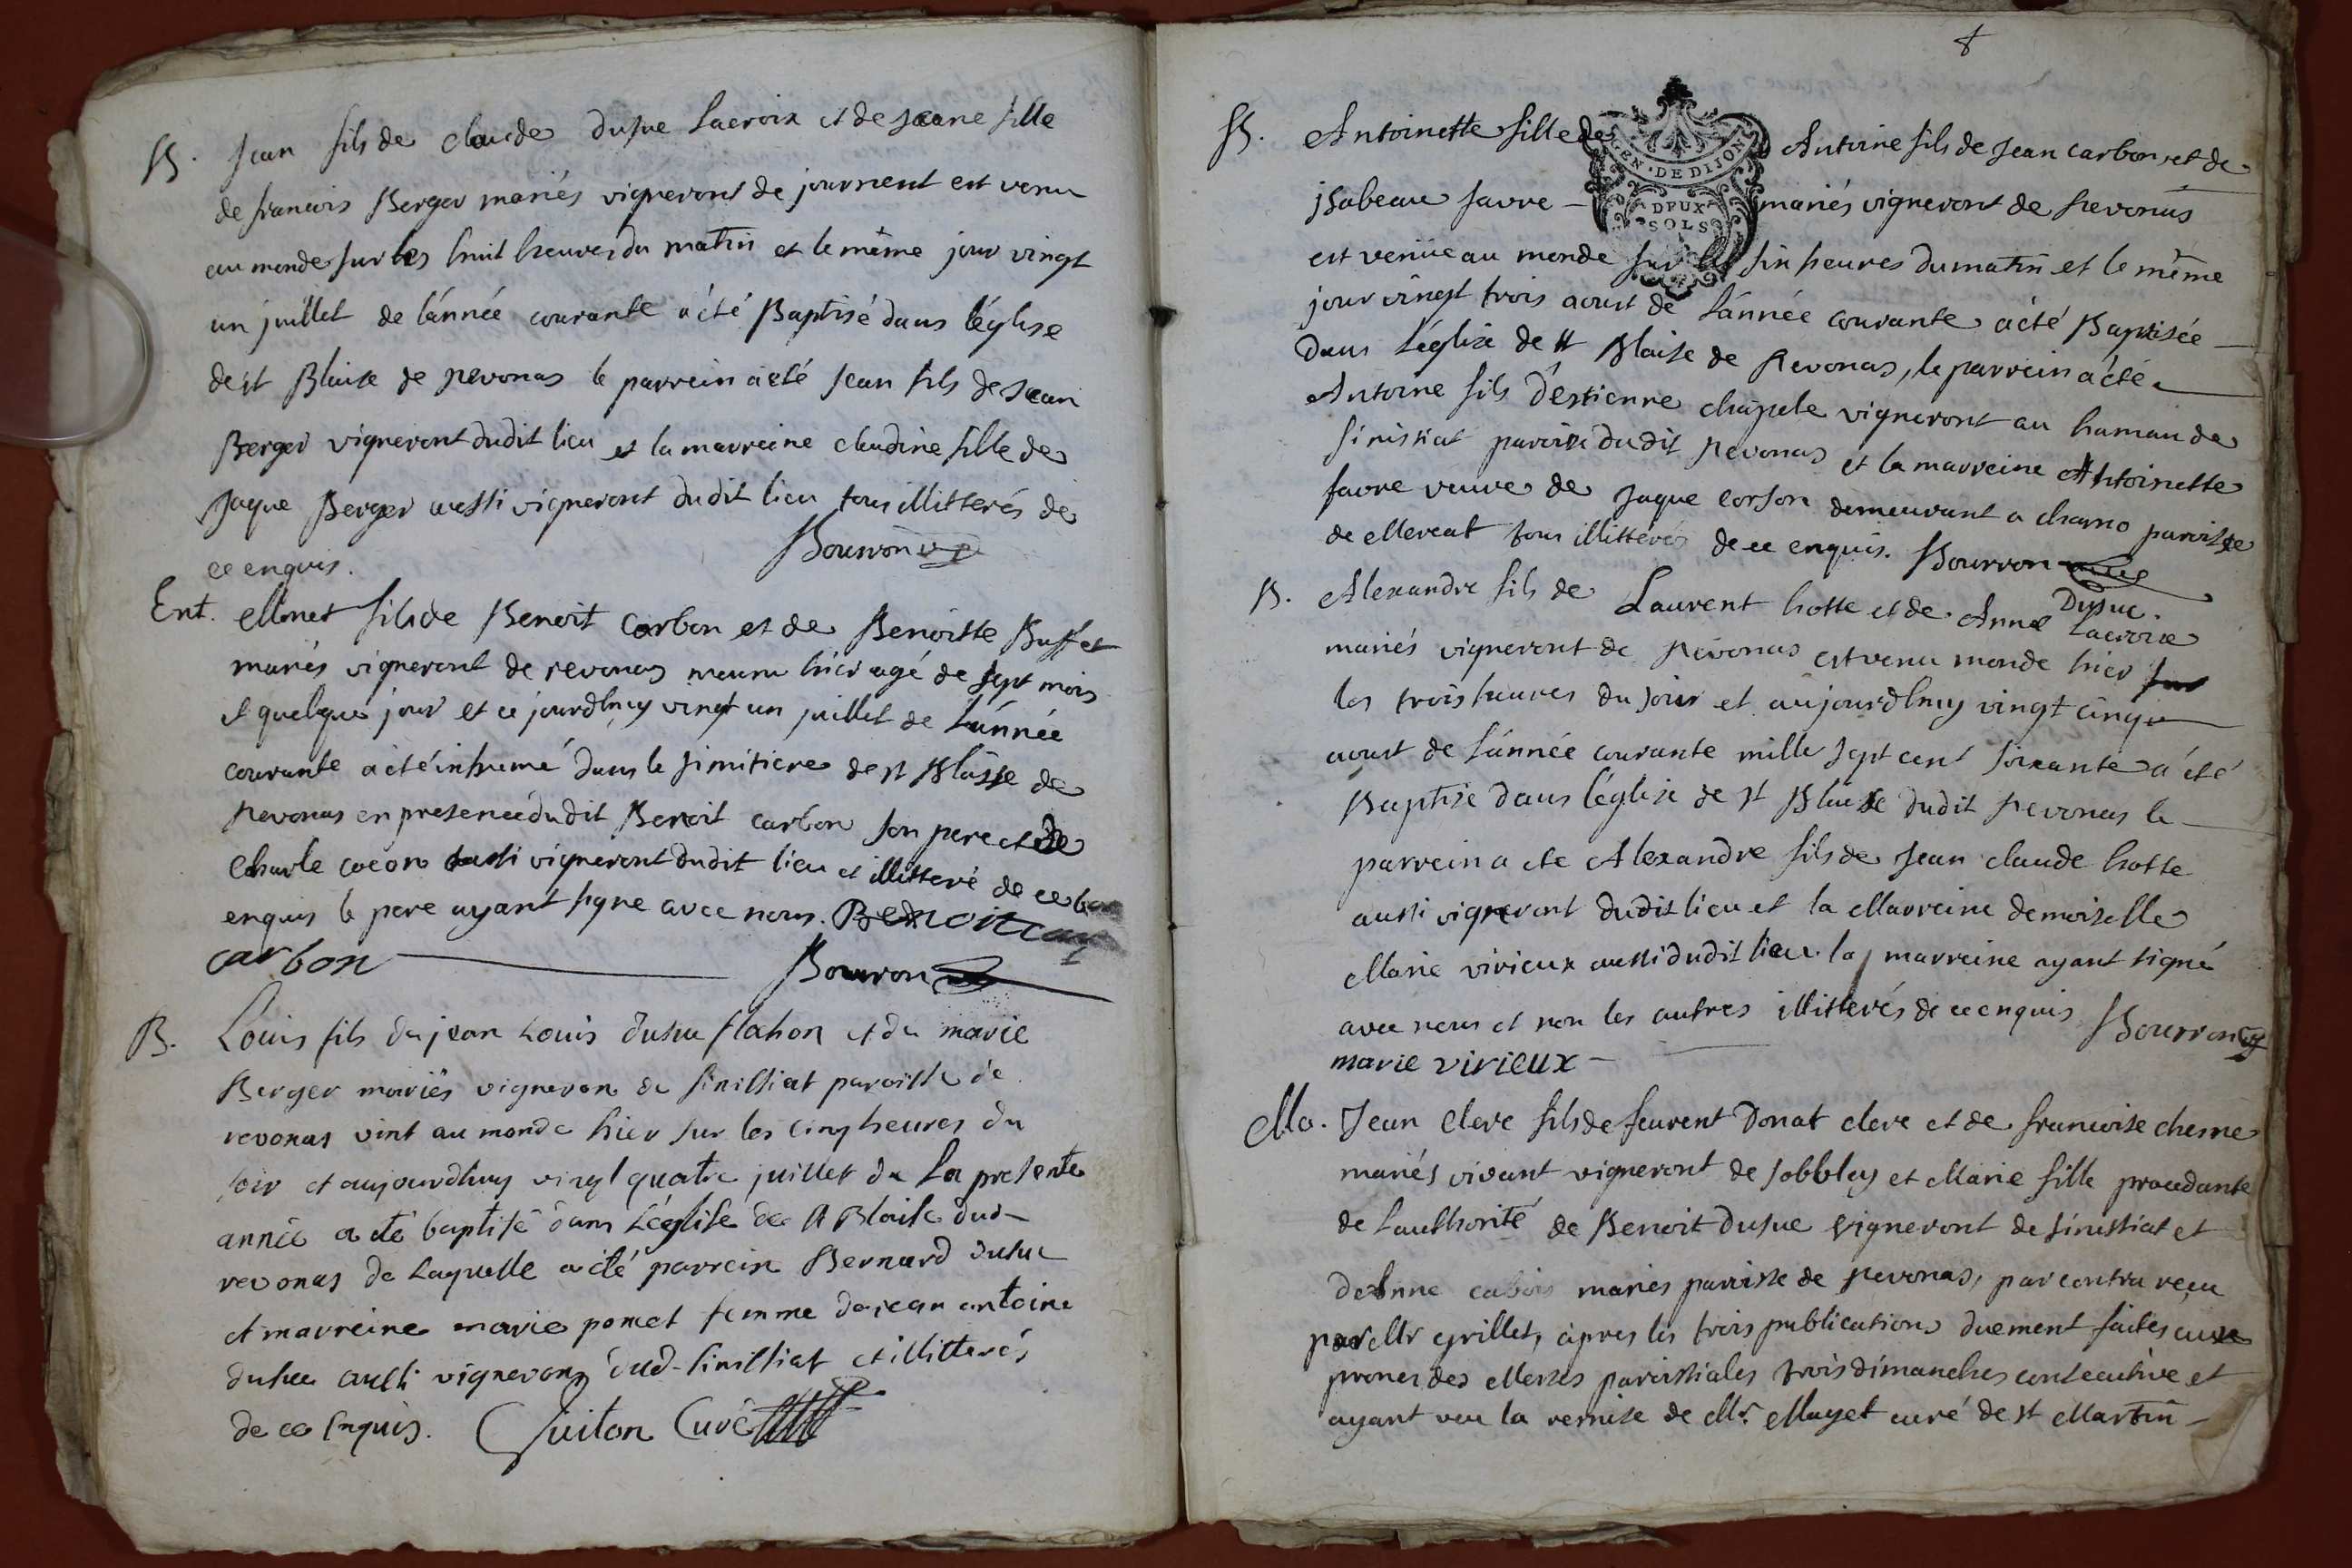 B. Jean fils de claude dusue Lacroix et de Jeane fille
de francois Berger mariés vigneront de journent est venu
au monde sur les huit heures du matin et le même jour vingt
un juillet de l'année courante a été Baptisé dans l'église
de st Blaise de Revonas le parrein a eté Jean fils de Jean
Berger vigneront dudit lieu et la marreine claudine fille de
Jaque Berger aussi vigneront dudit lieu tous illitterés de
ce enquis. Bourron
Ent. Monet fils de Benoit Carbon et de Benoitte Buffet
mariés vigneront de revonas mouru hier agé de sept mois
et quelque jour et ce jourdhuy vingt un juillet de l'année
courante a été inhumé dans le simitiere de st Blaise de
Revonas en presence dudit Benoit carbon son pere et de
Charle cocon aussi vigneront dudit lieu et illitteré de ce
enquis le pere ayant signe avec nous. Benoit
carbon Bourron
B. Louis fils de jean Louis dusue flahon et de marie
Berger mariés vigneron de sinissiat paroisse de
revonas vint au monde hier sur les cinq heures du
soir et aujourdhuy vingt quatre juillet de la presente
année a eté baptisé dans L'église de st Blaise dud-
revonas de Laquelle a été parrein Bernard dusue
et marreine marie pomet femme de jean antoine
dusue aussi vignerons dud-sinissiat et illitterés
de ce enquis. Guiton Curé
8
B. Antoinette fille de Antoine fils de Jean carbon et de
GEN. DE DIJON
DEUX
SOLS
jsabeau favre - mariés vigneront de Revonas
est venüe au monde sur les six heures du matin et le même
jour vingt trois aoust de l'année courante a été Baptisée
Dans l'église de st Blaise de Revonas, le parrein a été
Antoine fils d'estienne chapele vigneront au hamau de
sinissiat paroisse dudit Revonas et la marreine Antoinette
favre veuve de Jaque corson demeurant a charno paroisse
de Mereat tous illitterés de ce enquis. Bourron
B. Alexandre fils de Laurent hotte et de Anne Dusue Lacroix
mariés vigneront de Revonas est venu monde hier sur
les trois heures du soir et aujourdhuy vingt cinq
aoust de l'année courante mille sept cent soixante a été
Baptise dans l'église de st Blaise dudit Revonas le
parrein a ete Alexandre fils de Jean claude hotte
aussi vigneront dudit lieu et la Marreine demoiselle
Marie virieux aussi dudit lieu la marreine ayant signé
avec nous et non les autres illitterés de ce enquis Bourron
marie virieux -
Ma. Jean Clere fils de feurent Donat clere et de francoise chesne
mariés vivant vigneront de sobbley et Marie fille procedante
de l'authorité de Benoit dusue vigneront de sinissiat et
de Anne mariés paroisse de Revonas, par contra reçu
par Mr grillet, apres les trois publications duement faites aux
prones des Messes paroissiales trois dimanches consecutive et
ayant veu la remise de Mr. Mayet curé de st Martin -